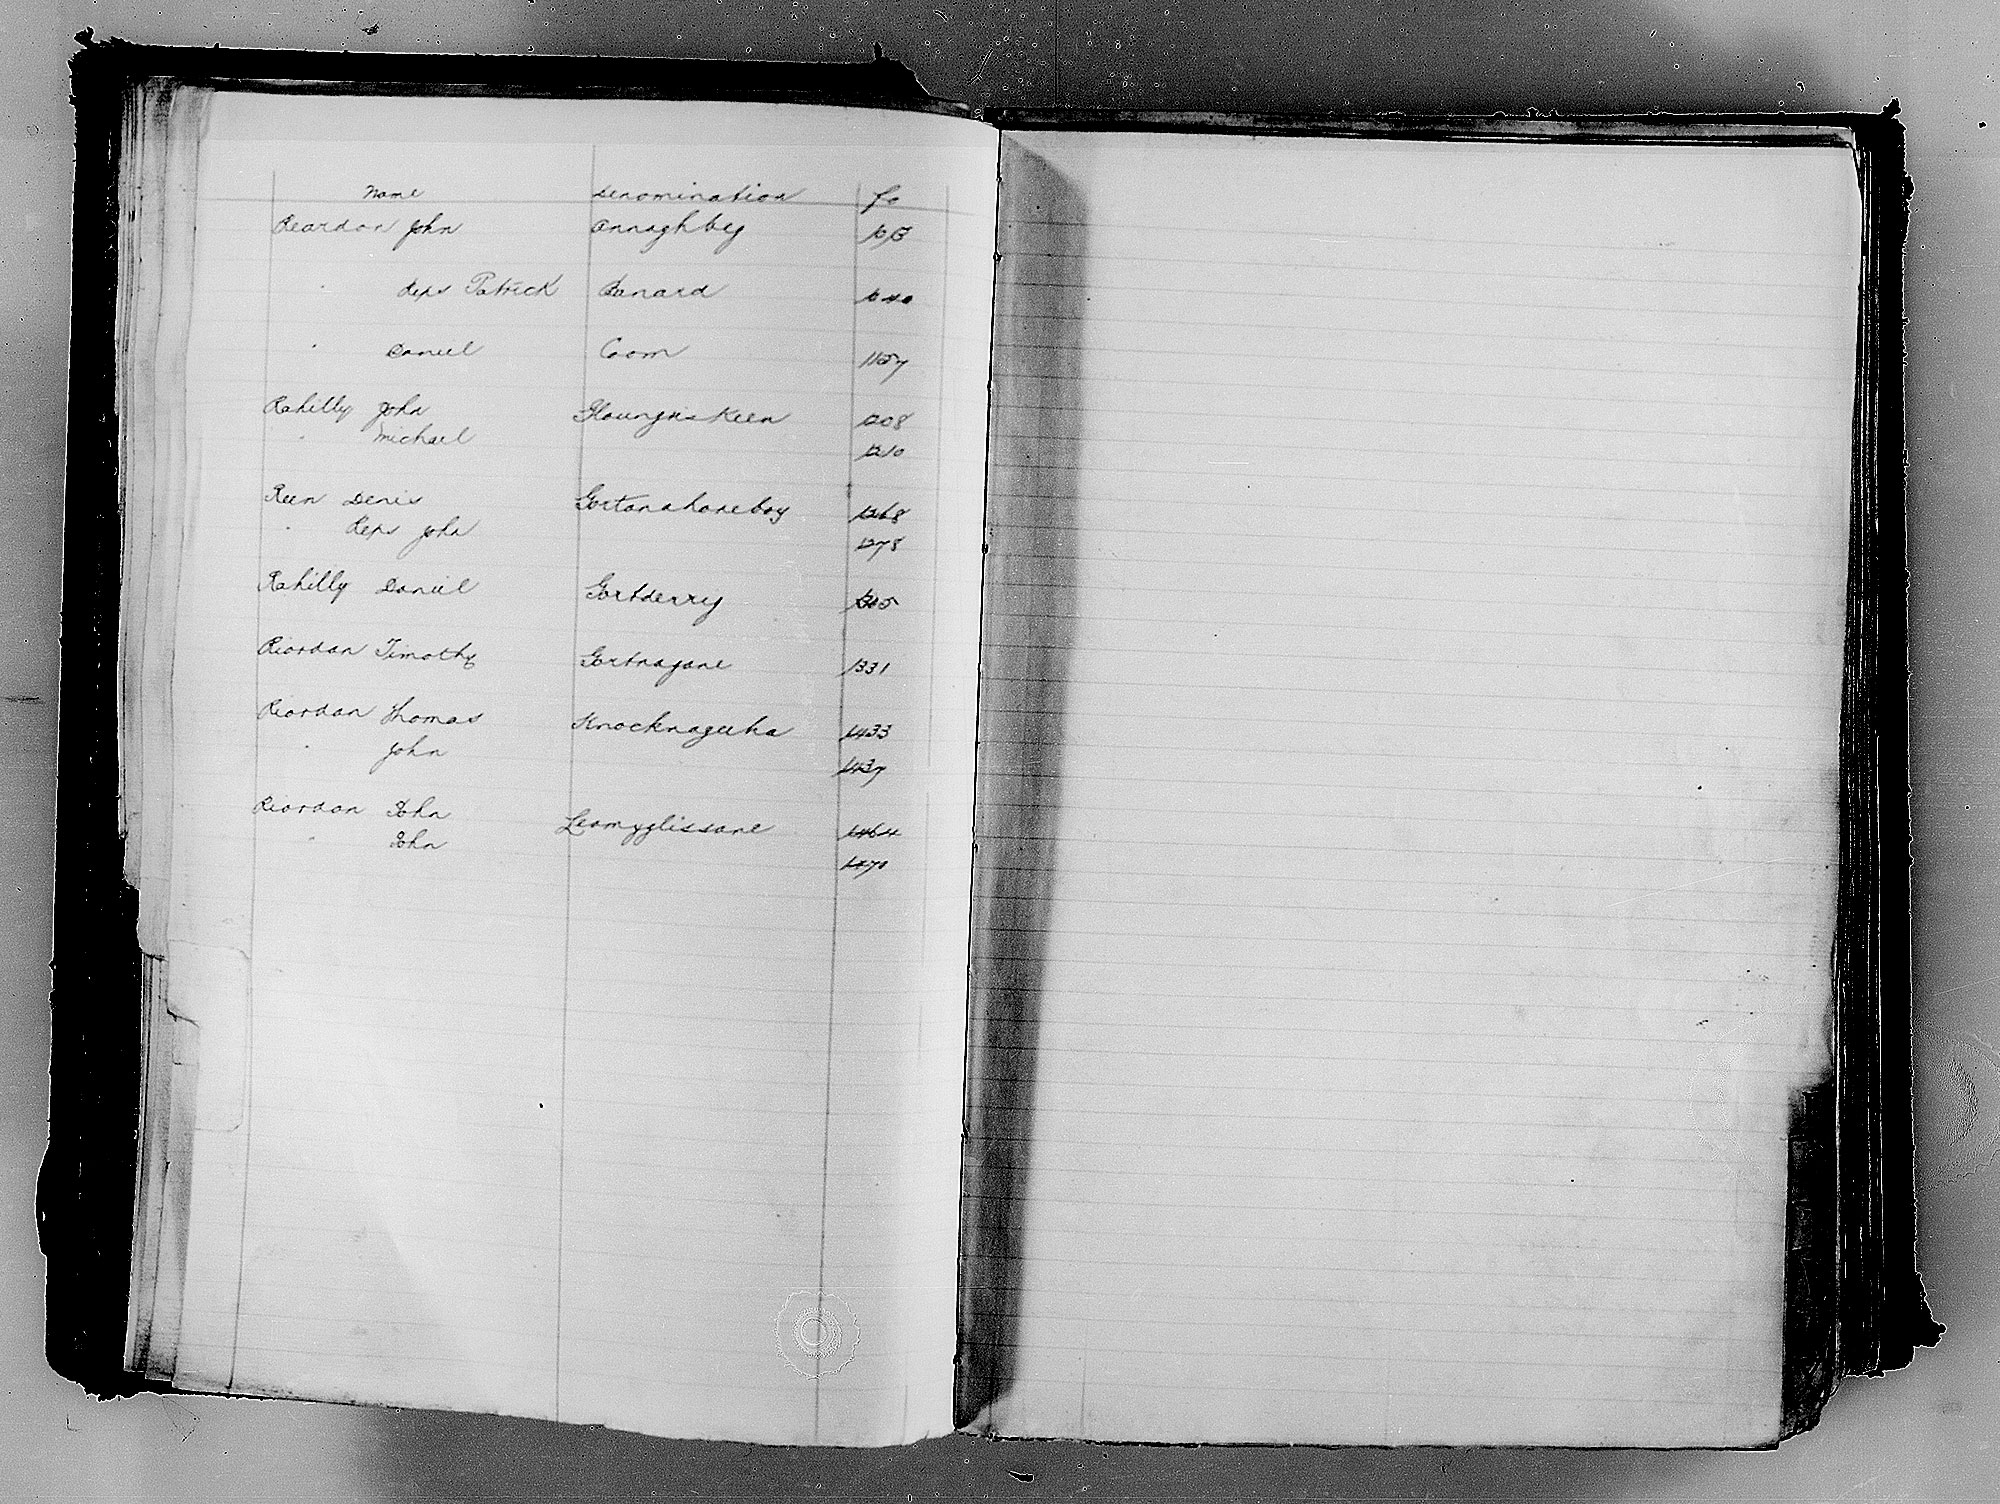 Name Denomination fo
Reardon John Annaghbeg
Reps Patrick Banard 1040
" Daniel Coom 1157
Rahilly John Gloungu-Keen 1208
" Michael 1210
Reen Denis Gortanahaneboy 1268
" Reps John 1275
Rahilly Daniel Gortderry
Riordan Timothy Gortnagane 1331
Riordan Thomas Knocknageeha 1433
" John 1437
Riordan John Leamyglissane 1464
" John 1470